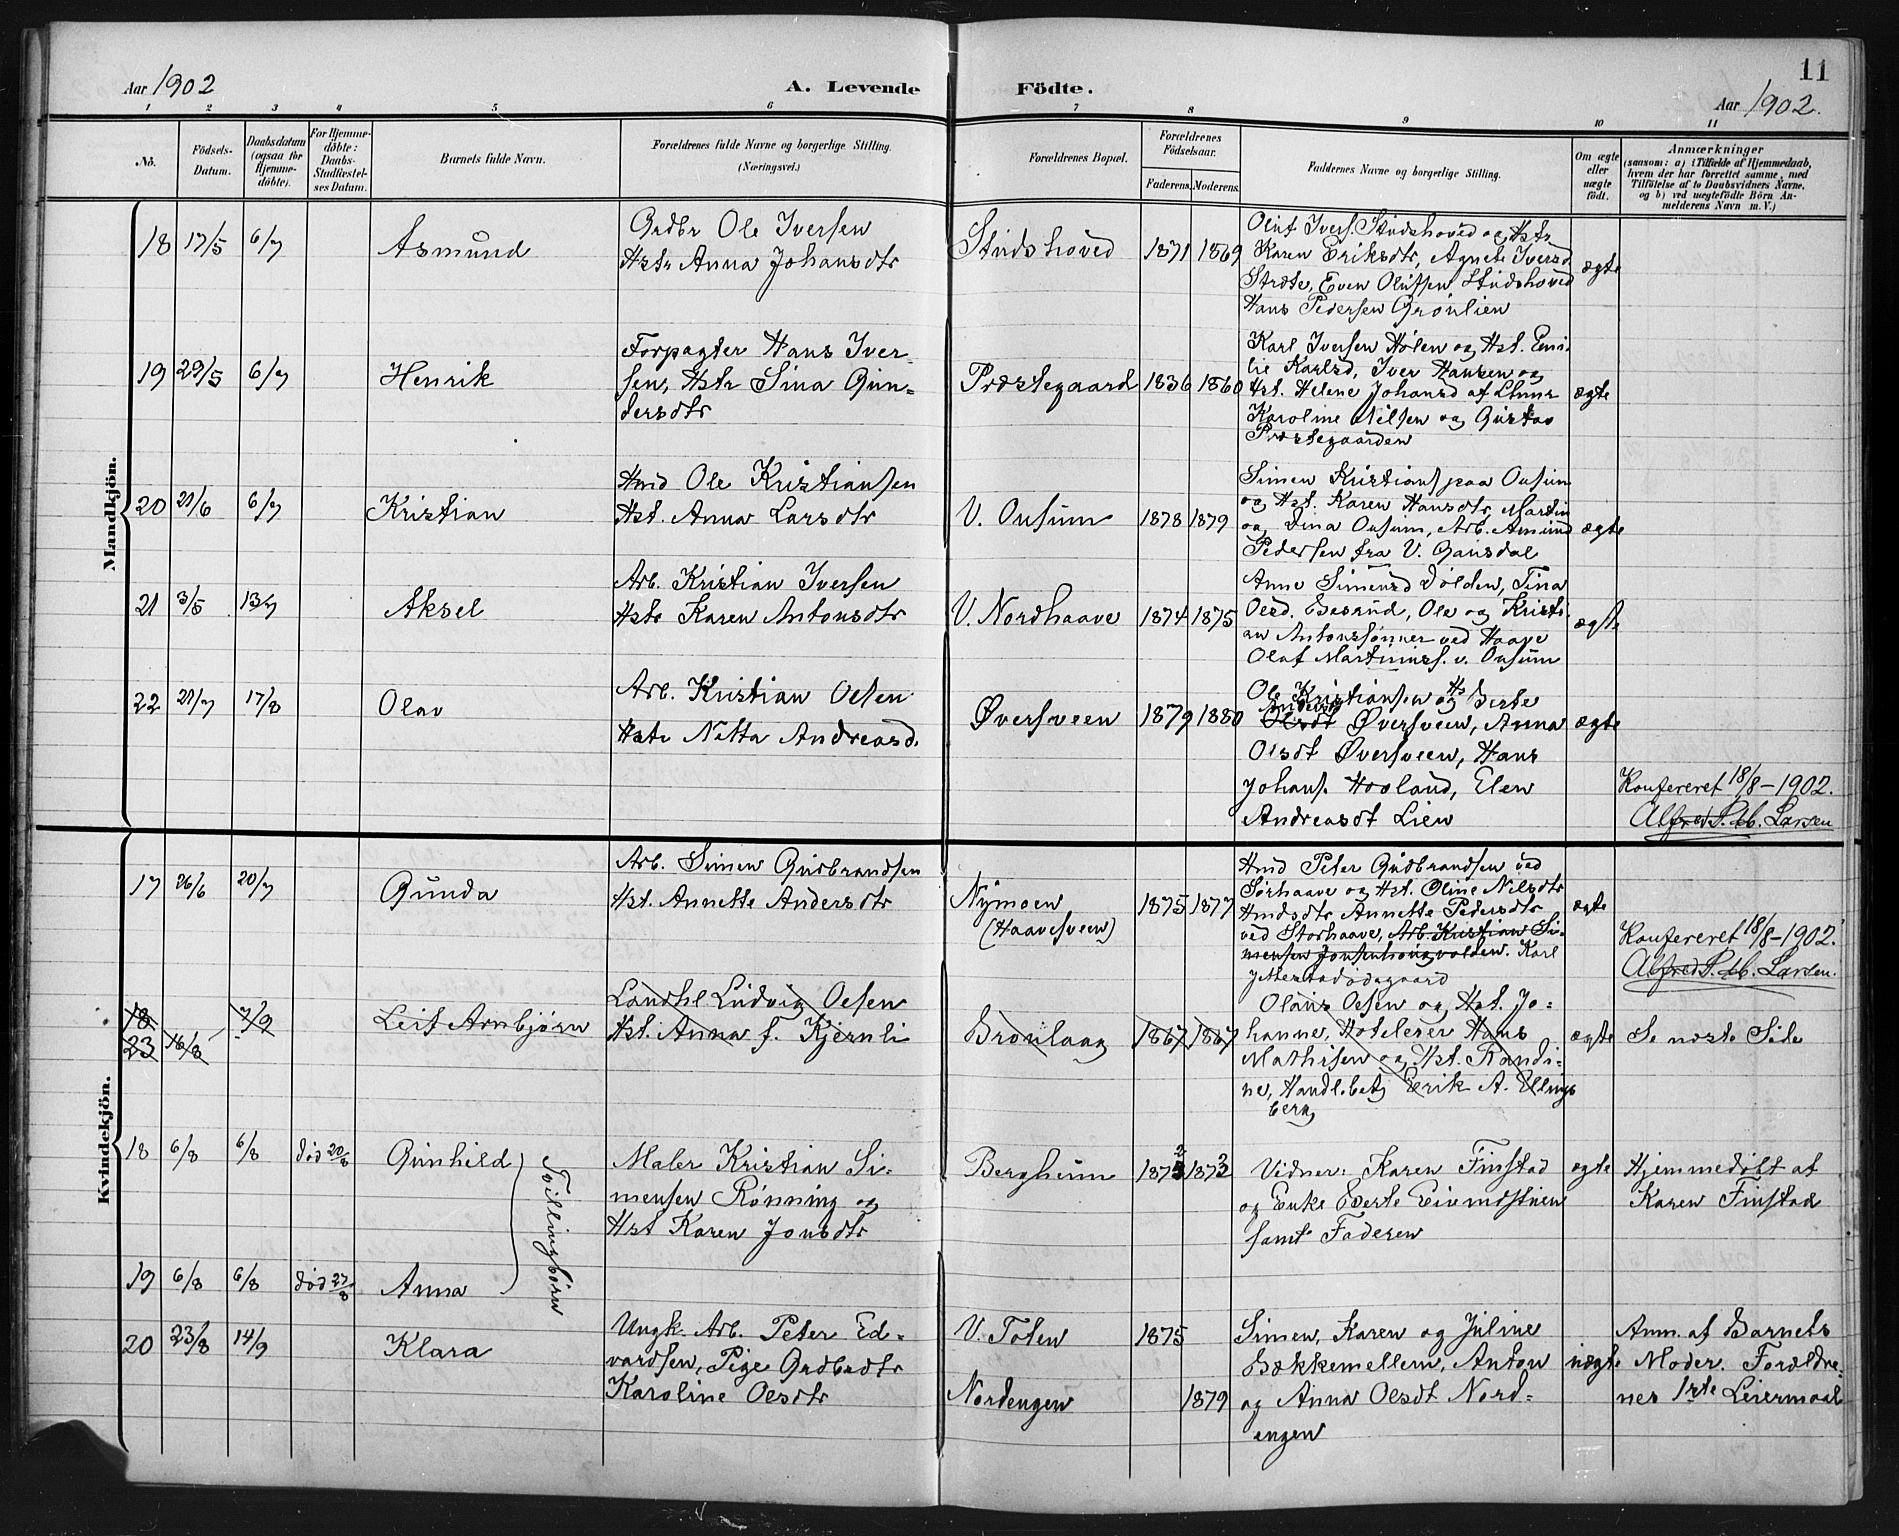 11
Aar 1902 A. Levende Födte. Aar 1902.
1 2 3 4 5 6 7 8 9 10 11
No.
Födsels-
Datum.
Daabsdatum
(ogsaa for
Hjemme-
döbte).
For Hjemme-
döbte:
Daabs-
Stadfæstel-
ses Datum.
Barnets fulde Navn.
Forældrenes fulde Navne og borgerlige Stilling.
(Næringsvei.)
Forældrenes Bopæl.
Forældrenes
Födselsaar.
Faderens. Moderens.
Faddernes Navne og borgerlige Stilling.
Om ægte
eller
uægte
födt.
Anmærkninger
(saasom: a) i Tilfælde af Hjemmedaab,
hvem der har forrettet samme, med
Tilföielse af to Daabsvidners Navne,
og b) ved uægtefödte Börn An-
melderens Navn m. V.)
Mandkjön.
18 17/5 6/7 Asmund
Grdbr Ole Iversen
Hstr Anna Johansdtr
Stüdshoved 1871 1869
Oluf Ivers. Stüdshoved og Hstr
Karen Eriksdtr, Agnete Iversd.
Stræte, Even Olüfsen Stüdshoved
Hans Pedersen Grönlien
ægte
19 29/5 6/7 Henrik
Forpagter Hans Iver-
sen, Hstr Sina Gün-
dersdtr
Præstegaard 1836 1860
Karl Iversen Holen og Hst. Emi-
lie Karlsd, Iver Hansen og
Hst. Helene Johansd af Lunnr
Karoline Nilsen og Güstav
Præstegaarden
ægte
20 21/6 6/7 Kristian
Hmd Ole Kristiansen
Hst. Anna Larsdtr
V. Onsüm 1878 1879
Simen Kristians paa Onsüm
og Hst. Karen Hansdtr, Martin
og Dina Onsüm, Arb. Amünd
Pedersen fra V. Gaüsdal
ægte
21 3/5 13/7 Aksel
Arb. Kristian Iversen
Hstr Karen Antonsdtr
V. Nordhaave 1874 1875
Anne Simensd Dölden, Tina
Olesd. , Ole og Kristi-
an Antonssönner ved Haave
Olaf Martiniüsf. v. Onsüm
ægte
22 21/7 17/8 Olav
Arb. Kristian Olsen
Hstr Netta Andreasd.
Øversveen 1879 1880
Ole Kristiansen og Hs Berte
Anders
Olsdt Øversveen, Anna
Olsdt Øversveen, Hans
Johans. Hovland, Elen
Andreasdt Lien
ægte
Konfereret 18/8-1902.
Alfred P. Larsen
Kvindekjön.
17 26/6 20/7 Günda
Arb. Simen Güdbrandsen
Hst. Annette Andersdtr
Nÿmoen
(Haavesveen)
1875 1877
Hmd Peter Güdbrandsen ved
Sörhaave og Hst. Oline Nilsdtr
Hmdsdtr Annette Pedersdtr
ved Storhaave, Arb. Kristian Si-
mensen Jonsenhoügvolden. Karl
Jetterstadödegaard
ægte
Konfereret 18/8-1902.
Alfred P. Larsen.
18
23
16/8 7/9 Leif Arnbjørn
Landhl Lüdvig Olsen
Hst. Anna f. Kjernli
Bronlaag 1867 1867
Olaüs Olsen og Hst. Jo-
hanne, Hotelejer Hans
Mathisen og Hst. Randi-
ne, Handl.betj Erik A. Ellings
berg
ægte Se næste Side
18 6/8 6/8 död 20/8 Günhild
Tvillingbörn
Maler Kristian Si-
mensen Rønning og
Hst Karen Jonsdtr
Bergheim 1872 1873
Vidner: Karen Finstad
og Enke Berte Eivindstüen
samt Faderen
ægte
Hjemmedöbt af
Karen Finstad
19 6/8 6/8 död 27/8 Anna
20 23/8 14/9 Klara
Ungk. Arb. Peter Ed-
vardsen, Pige Grdbrdtr
Karoline Olsdtr
V. Toten 1875
Nordengen 1879
Simen, Karen og Jüline
Bækkemellem, Anton
og Anna Olsdt Nord-
engen
üægte
Anm. af Barnets
Moder. Forældre-
nes 1ste Leiermaal